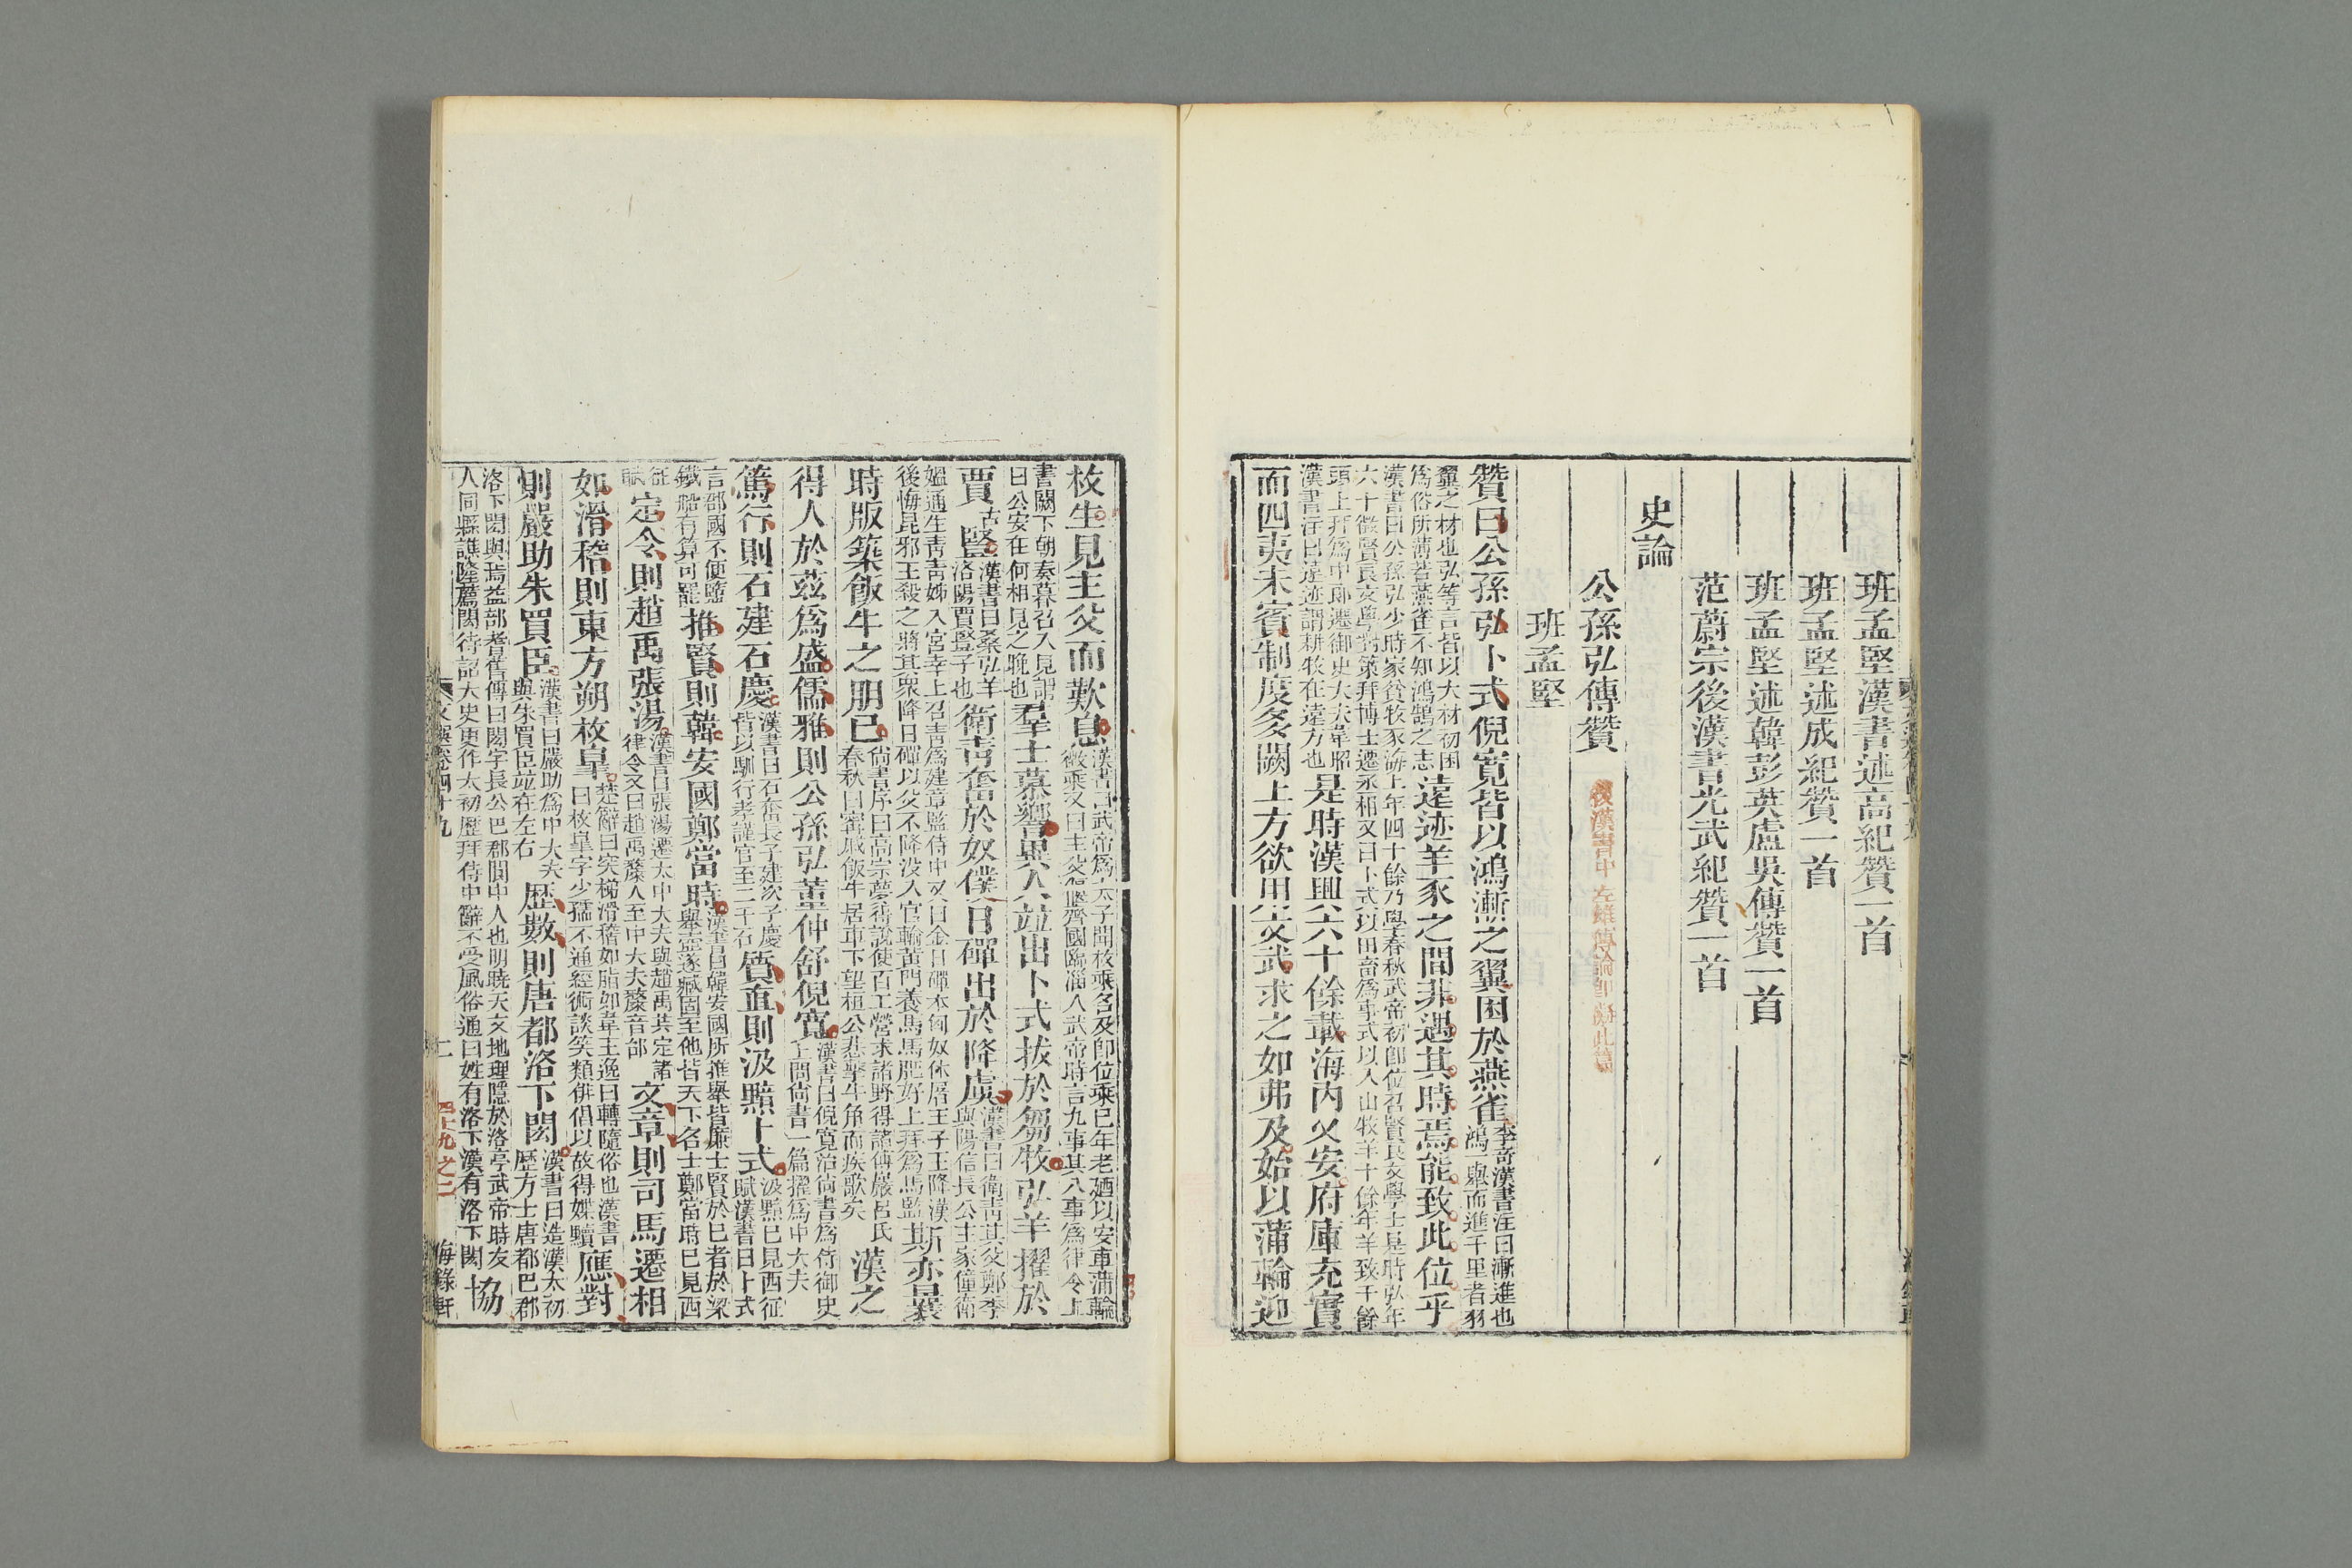 班孟堅漢書述高紀贊一首
班孟堅述成紀贊一首
班孟堅述韓彭英盧吳傳贊一首
范蔚宗後漢書光武紀贊一首
史論
公孫弘傳贊
後漢書中左雄傳論即擬此篇
班孟堅
贊曰公孫弘卜式倪寬皆以鴻漸之翼困於燕雀李奇漢書注曰漸進也鴻一舉而進千里者羽
翼之材也弘等言皆以大材初困爲俗所薄若燕雀不知鴻鵠之志遠迹羊豕之間非遇其時焉能致此位乎
漢書曰公孫弘少時家貧牧豕海上年四十餘乃學春秋武帝初即位召賢良文學士是時弘年六十徵賢良文學對策拜博士遷丞相又曰卜式以田畜爲事式以入山牧羊十餘年羊致千餘
頭上拜爲中郎遷御史大夫韋昭漢書注曰遠迹謂耕牧在遠方也是時漢興六十餘載海內乂安府庫充實
而四夷未賓制度多闕上方欲用文武求之如弗及始以蒲輪迎
枚生見主父而歎息漢書曰武帝爲太子聞枚乘名及即位乘已年老廼以安車蒲輪徵乘又曰主父偃齊國臨淄人武帝時言九事其八事爲律令上
書闕下朝奏暮召入見謂曰公安在何相見之晚也羣士慕嚮異人竝出卜式拔於芻牧弘羊擢於
賈豎漢書曰桑弘羊洛陽賈豎子也衛青奮於奴僕日磾出於降虜漢書曰衛青其父鄭季與陽信長公主家僮衛
媼通生青青姊入宮幸上召青爲建章監侍中又曰金日磾本匈奴休屠王子王降漢後悔昆邪王殺之將其衆降日磾以父不降没入官輸黃門養馬馬肥好上拜爲馬監斯亦曩
時版築飯牛之朋已尚書序曰高宗夢得說使百工營求諸野得諸傅巖呂氏春秋曰甯戚飯牛居車下望桓公悲擊牛角而疾歌矣漢之
得人於茲爲盛儒雅則公孫弘董仲舒倪寬漢書曰倪寬治尚書爲侍御史上問尚書一篇擢爲中大夫
篤行則石建石慶漢書曰石奮長子建次子慶皆以馴行孝謹官至二千石質直則汲黯卜式汲黯已見西征賦漢書曰卜式
言郡國不便鹽鐵船有算可罷推賢則韓安國鄭當時漢書曰韓安國所推舉皆廉士賢於己者於梁舉壺遂臧固至他皆天下名士鄭當時已見西
征賦定令則趙禹張湯漢書曰張湯遷太中大夫與趙禹共定諸律令又曰趙禹斄人至中大夫斄音邰文章則司馬遷相
如滑稽則東方朔枚皋楚辭曰突梯滑稽如脂如韋王逸曰轉隨俗也漢書曰枚皋字少孺不通經術談笑類俳倡以故得媟黷應對
則嚴助朱買臣漢書曰嚴助爲中大夫與朱買臣竝在左右歷數則唐都洛下閎漢書曰造漢太初歷方士唐都巴郡
洛下閎與焉益部耆舊傳曰閎字長公巴郡閬中人也明曉天文地理隱於洛亭武帝時友人同縣譙隆薦閎待詔太史更作太初歷拜侍中辭不受風俗通曰姓有洛下漢有洛下閎協
文選卷四十九
二
四十九之二
海錄軒